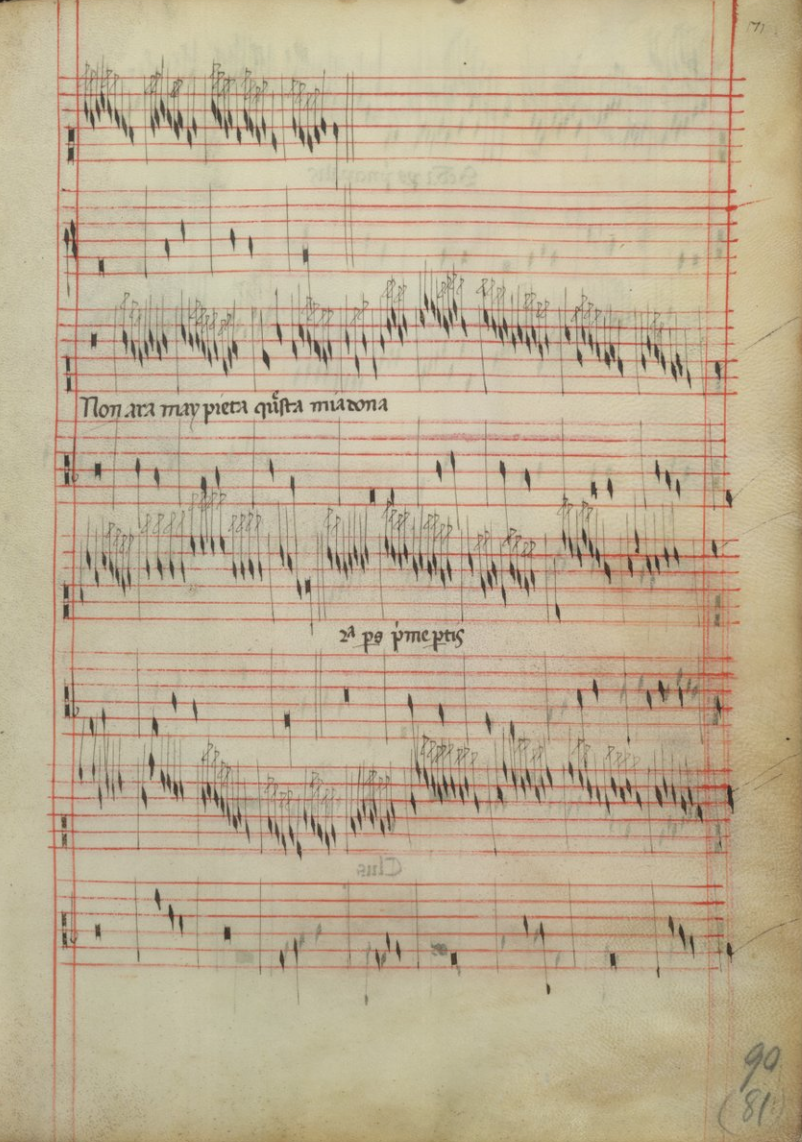 Non ara may pieta qūsta mia dona
2a ps p'me ptis
90
(81)